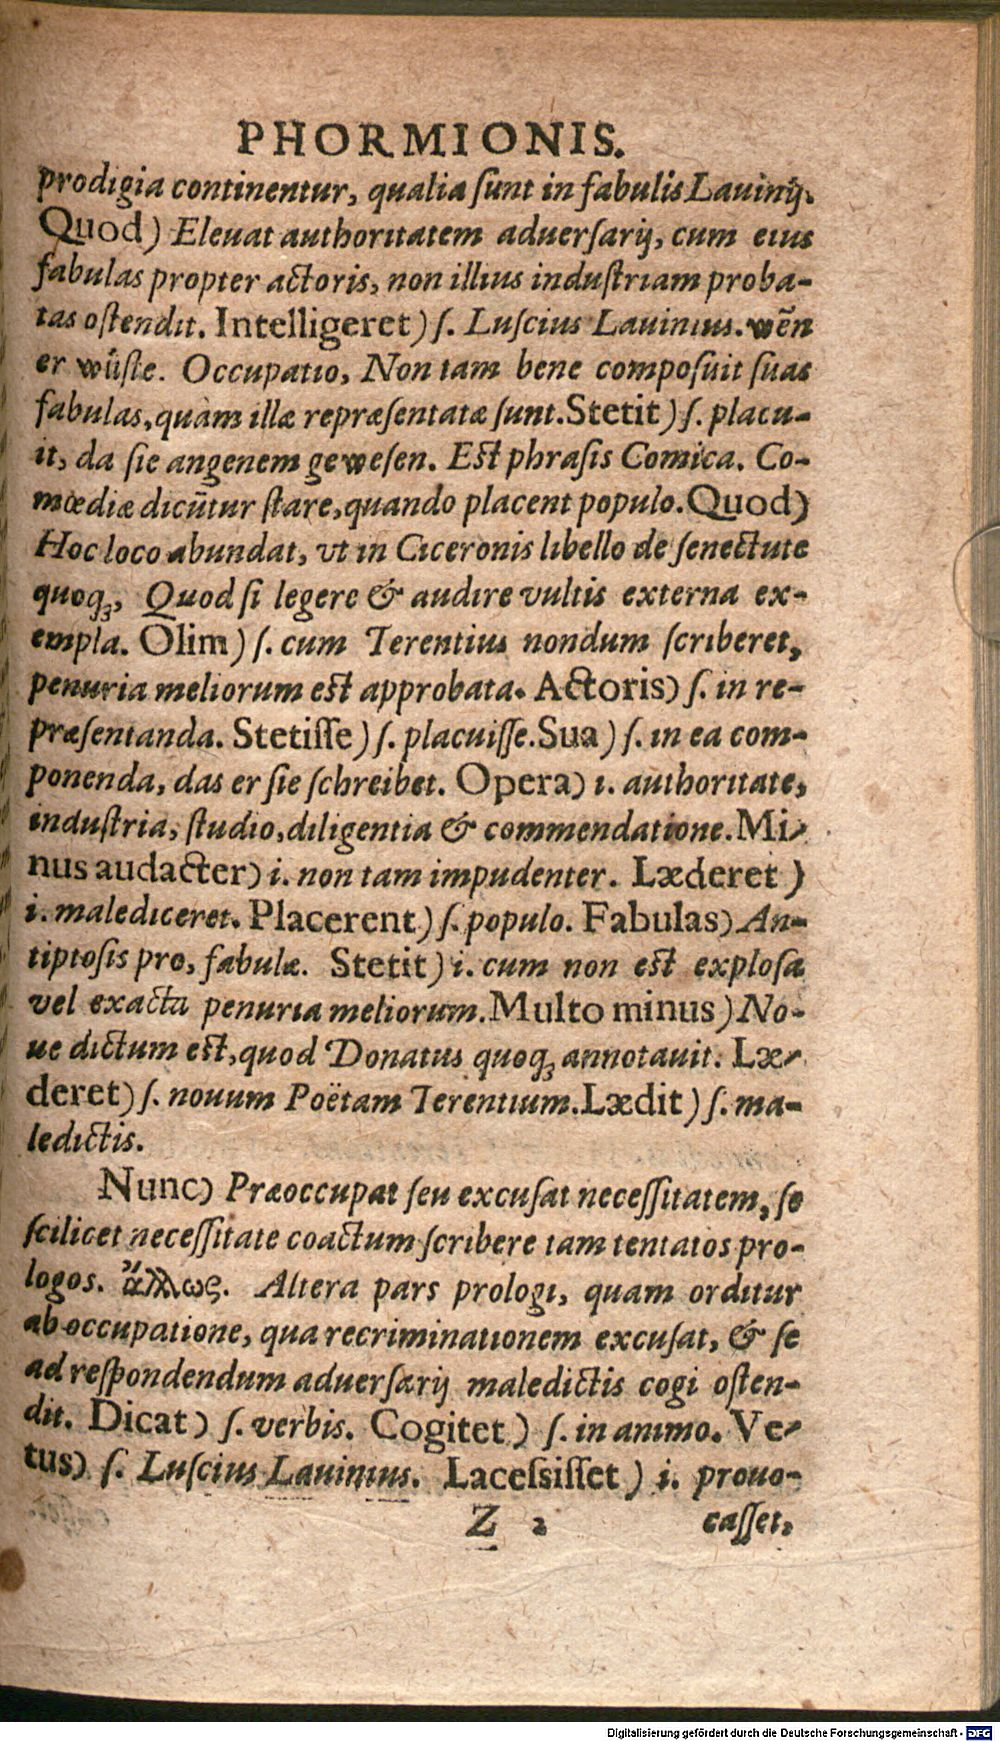 PHORMIONIS.
prodigia continentur, qualia ſunt in fabulis Lauinij.
Quod) Eleuat authoritatem aduerſarij, cum eius
fabulas propter actoris, non illius induſtriam proba-
tas oſtendit. Intelligeret) ſ. Luſcius Lauinius. wēn
er wüſte. Occupatio, Non tam bene compoſuit ſuas
fabulas, quàm illæ repræſentatæ ſunt. Stetit) ſ. placu-
it, da ſie angenem geweſen. Eſt phraſis Comica. Co-
mœdiæ dicūtur ſtare, quando placent populo. Quod)
Hoc loco abundat, vt in Ciceronis libello de ſenectute
quoq́ꝫ, Quod ſi legere & audire vultis externa ex-
empla. Olim) ſ. cum Terentius nondum ſcriberet,
penuria meliorum eſt approbata. Actoris) ſ. in re-
præſentanda. Stetiſſe) ſ. placuiſſe. Sua) ſ. in ea com-
ponenda, das er ſie ſchreibet. Opera) i. authoritate,
induſtria, ſtudio, diligentia & commendatione. Mi-
nus audacter) i. non tam impudenter. Læderet)
i. malediceret. Placerent) ſ. populo. Fabulas) An-
tiptoſis pro, fabulæ. Stetit) i. cum non eſt exploſa
vel exacta penuria meliorum. Multo minus) No-
ue dictum eſt, quod Donatus quoq́ꝫ annotauit. Læ-
deret) ſ. nouum Poëtam Terentium. Lædit) ſ. ma-
ledictis.
Nunc) Præoccupat ſeu excuſat neceſſitatem, ſe
ſcilicet neceſſitate coactum ſcribere tam tentatos pro-
logos. ἄλλως. Altera pars prologi, quam orditur
ab occupatione, qua recriminationem excuſat, & ſe
ad reſpondendum aduerſarij maledictis cogi oſten-
dit. Dicat) ſ. verbis. Cogitet) ſ. in animo. Ve-
tus) ſ. Luſcius Lauinius. Laceſsiſſet) i. prouo-
Z 2 caſſet,
Digitalisierung gefördert durch die Deutsche Forschungsgemeinschaft - DFG